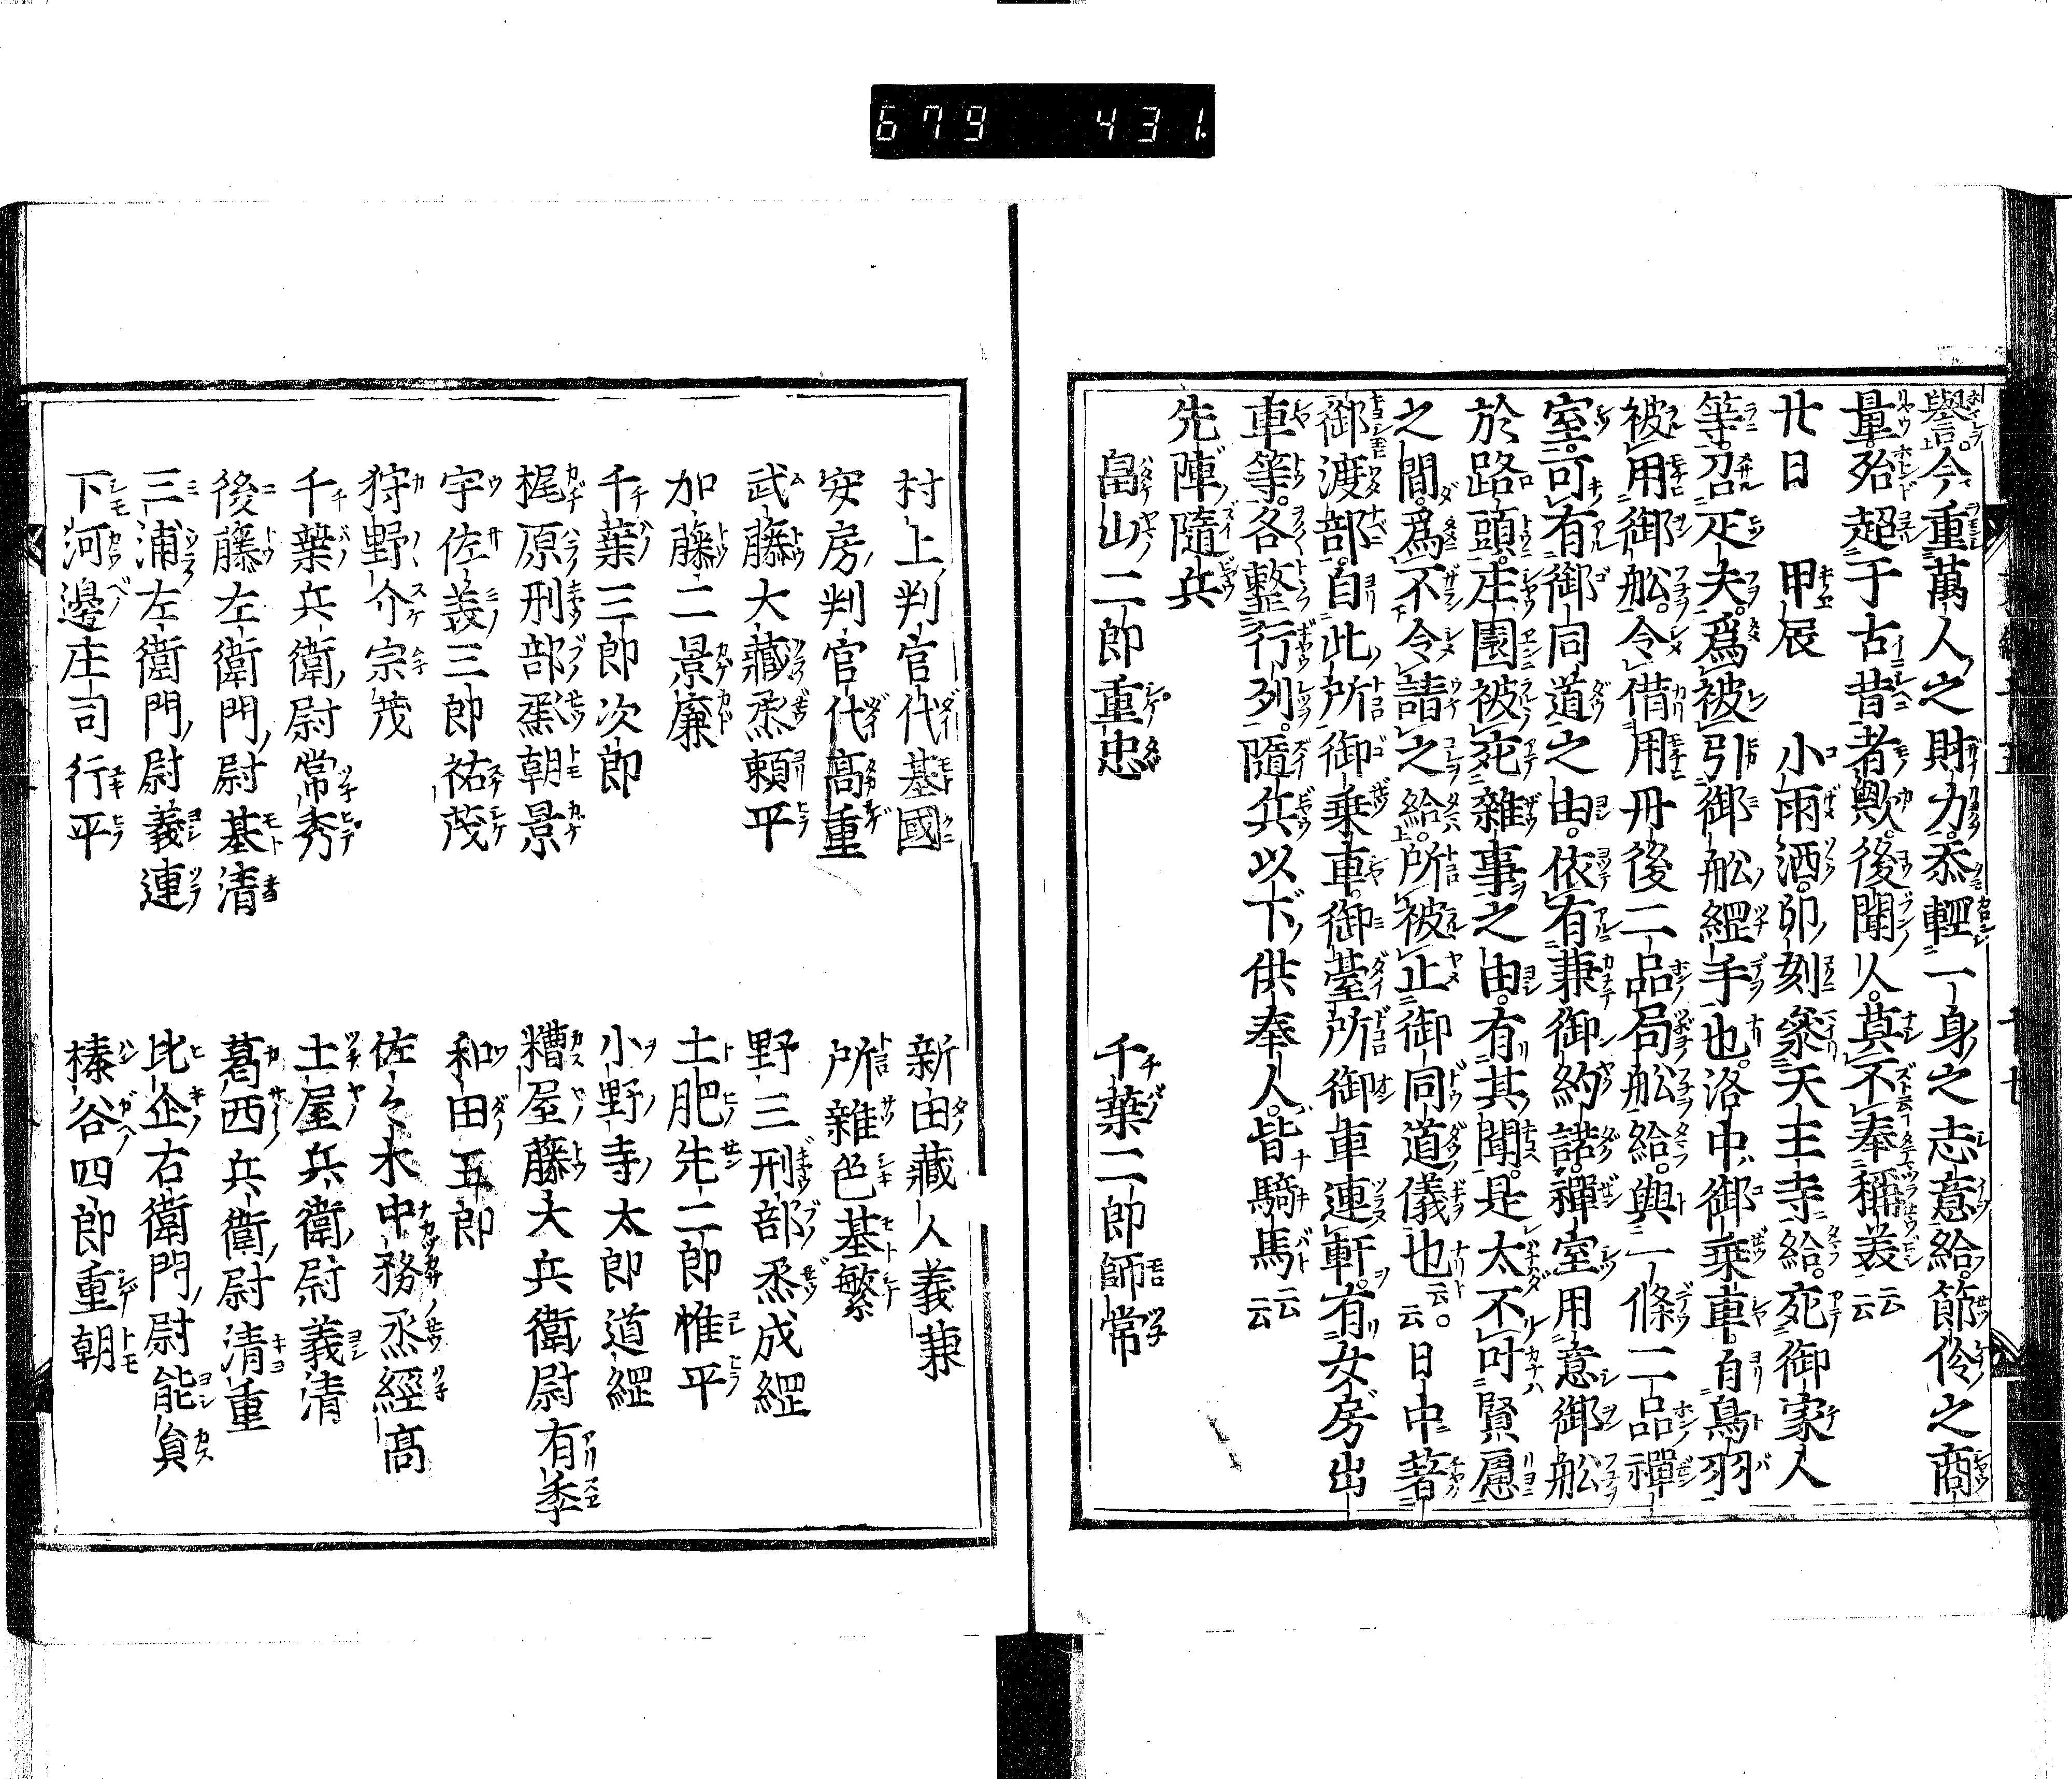 679 431.
譽。今重萬人之財力。忝輕一身之志意給。節伶之商
量。殆超于古昔者歟。後聞人。莫不奉稱美云云
廿日 甲辰 小雨洒。卯刻參天王寺給。宛御家人
等。召疋夫。爲被引御舩綱手也。洛中御乗車。自鳥羽
被用御舩。令借用丹後二品局舩給。與一條二品禪
室。可有御同道之由。依有兼御約諾。禪室用意御舩
於路頭。庄園被宛雜事之由。有其聞。是太不叶賢慮
之間。爲不令請之給。所被止御同道儀也云云。日中著
御渡部。自此所御乗車。御臺所御車連軒。有女房出
車等。各整行列。隨兵以下供奉人。皆騎馬云云
先陣隨兵
畠山二郎重忠 千葉二郎師常
村上判官代基國 新田藏人義兼
安房判官代高重 所雜色基繁
武藤大藏丞頼平 野三刑部丞成綱
加藤二景廉 土肥先二郎惟平
千葉三郎次郎 小野寺太郎道綱
梶原刑部丞朝景 糟屋藤太兵衛尉有季
宇佐義三郎祐茂 和田五郎
狩野介宗茂 佐々木中務丞經高
千葉兵衛尉常秀 土屋兵衛尉義清
後藤左衛門尉基清 葛西兵衛尉清重
三浦左衛門尉義連 比企右衛門尉能員
下河邊庄司行平 榛谷四郎重朝